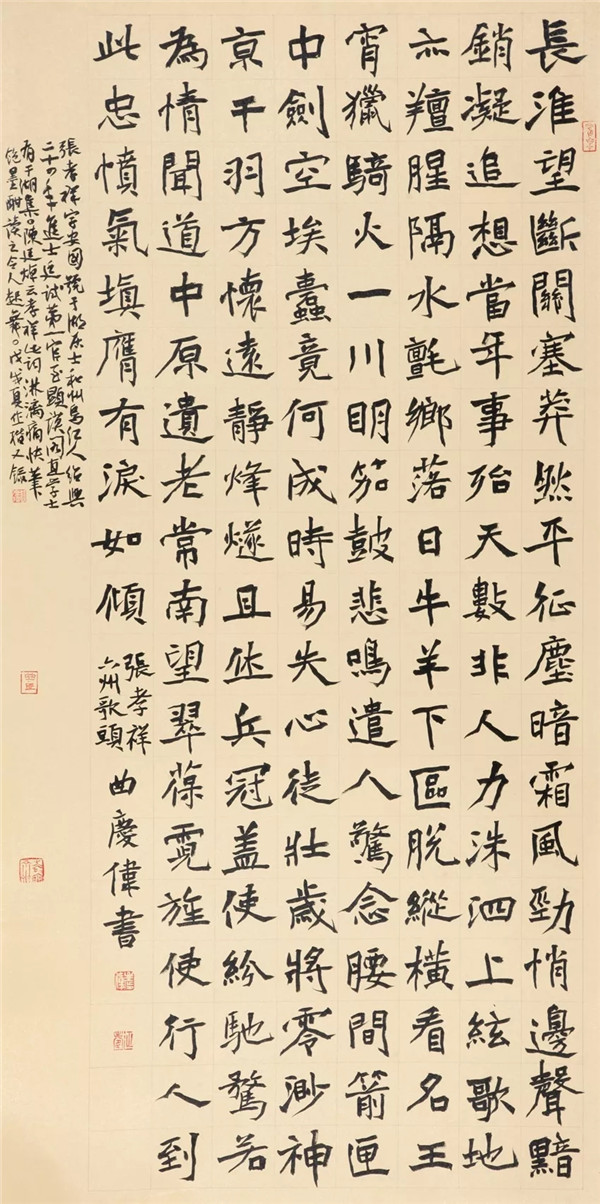 長淮望斷關塞莽然平征塵暗霜風勁悄邊聲黯
銷凝追想當年事殆天數非人力洙泗上絃歌地
亦羶腥隔水氈鄉落日牛羊下區脫縱橫看名王
宵獵騎火一川明笳鼓悲鳴遣人驚念腰間箭匣
中劍空埃蠹竟何成時易失心徒壯歲將零渺神
京干羽方懷遠靜烽燧且休兵冠蓋使紛馳騖若
為情聞道中原遺老常南望翠葆霓旌使行人到
此忠憤氣填膺有淚如傾
張孝祥
六州歌頭
曲慶偉書
張孝祥字安國號于湖居士和州烏江人紹興
二十四年進士廷試第一官至顯謨閣直学士
有于湖集陳廷焯云孝祥此詞淋漓痛快筆
飽墨酣讀之令人起舞戊戌夏 又錄